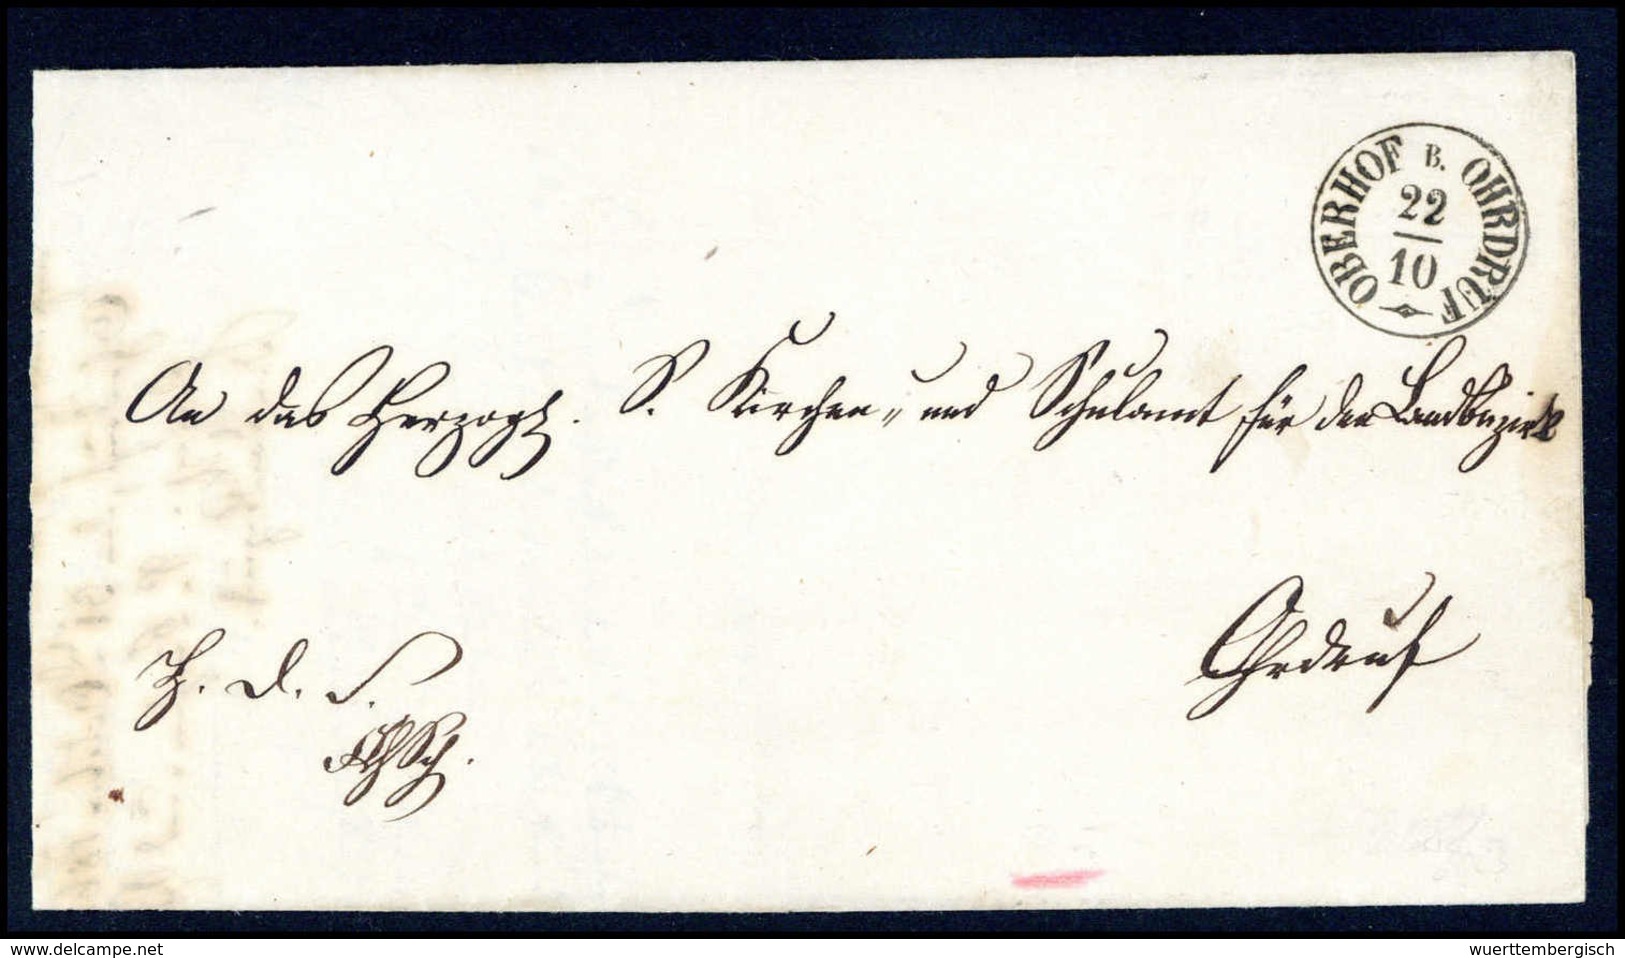 OBERHOF B. OHRDRUF
22
10
An das Herzogl. S. Kirchen- und Schulamt für den Landbezirk
Ohrdruf
H. D. S.
www.delcampe.net
wuerttembergisch